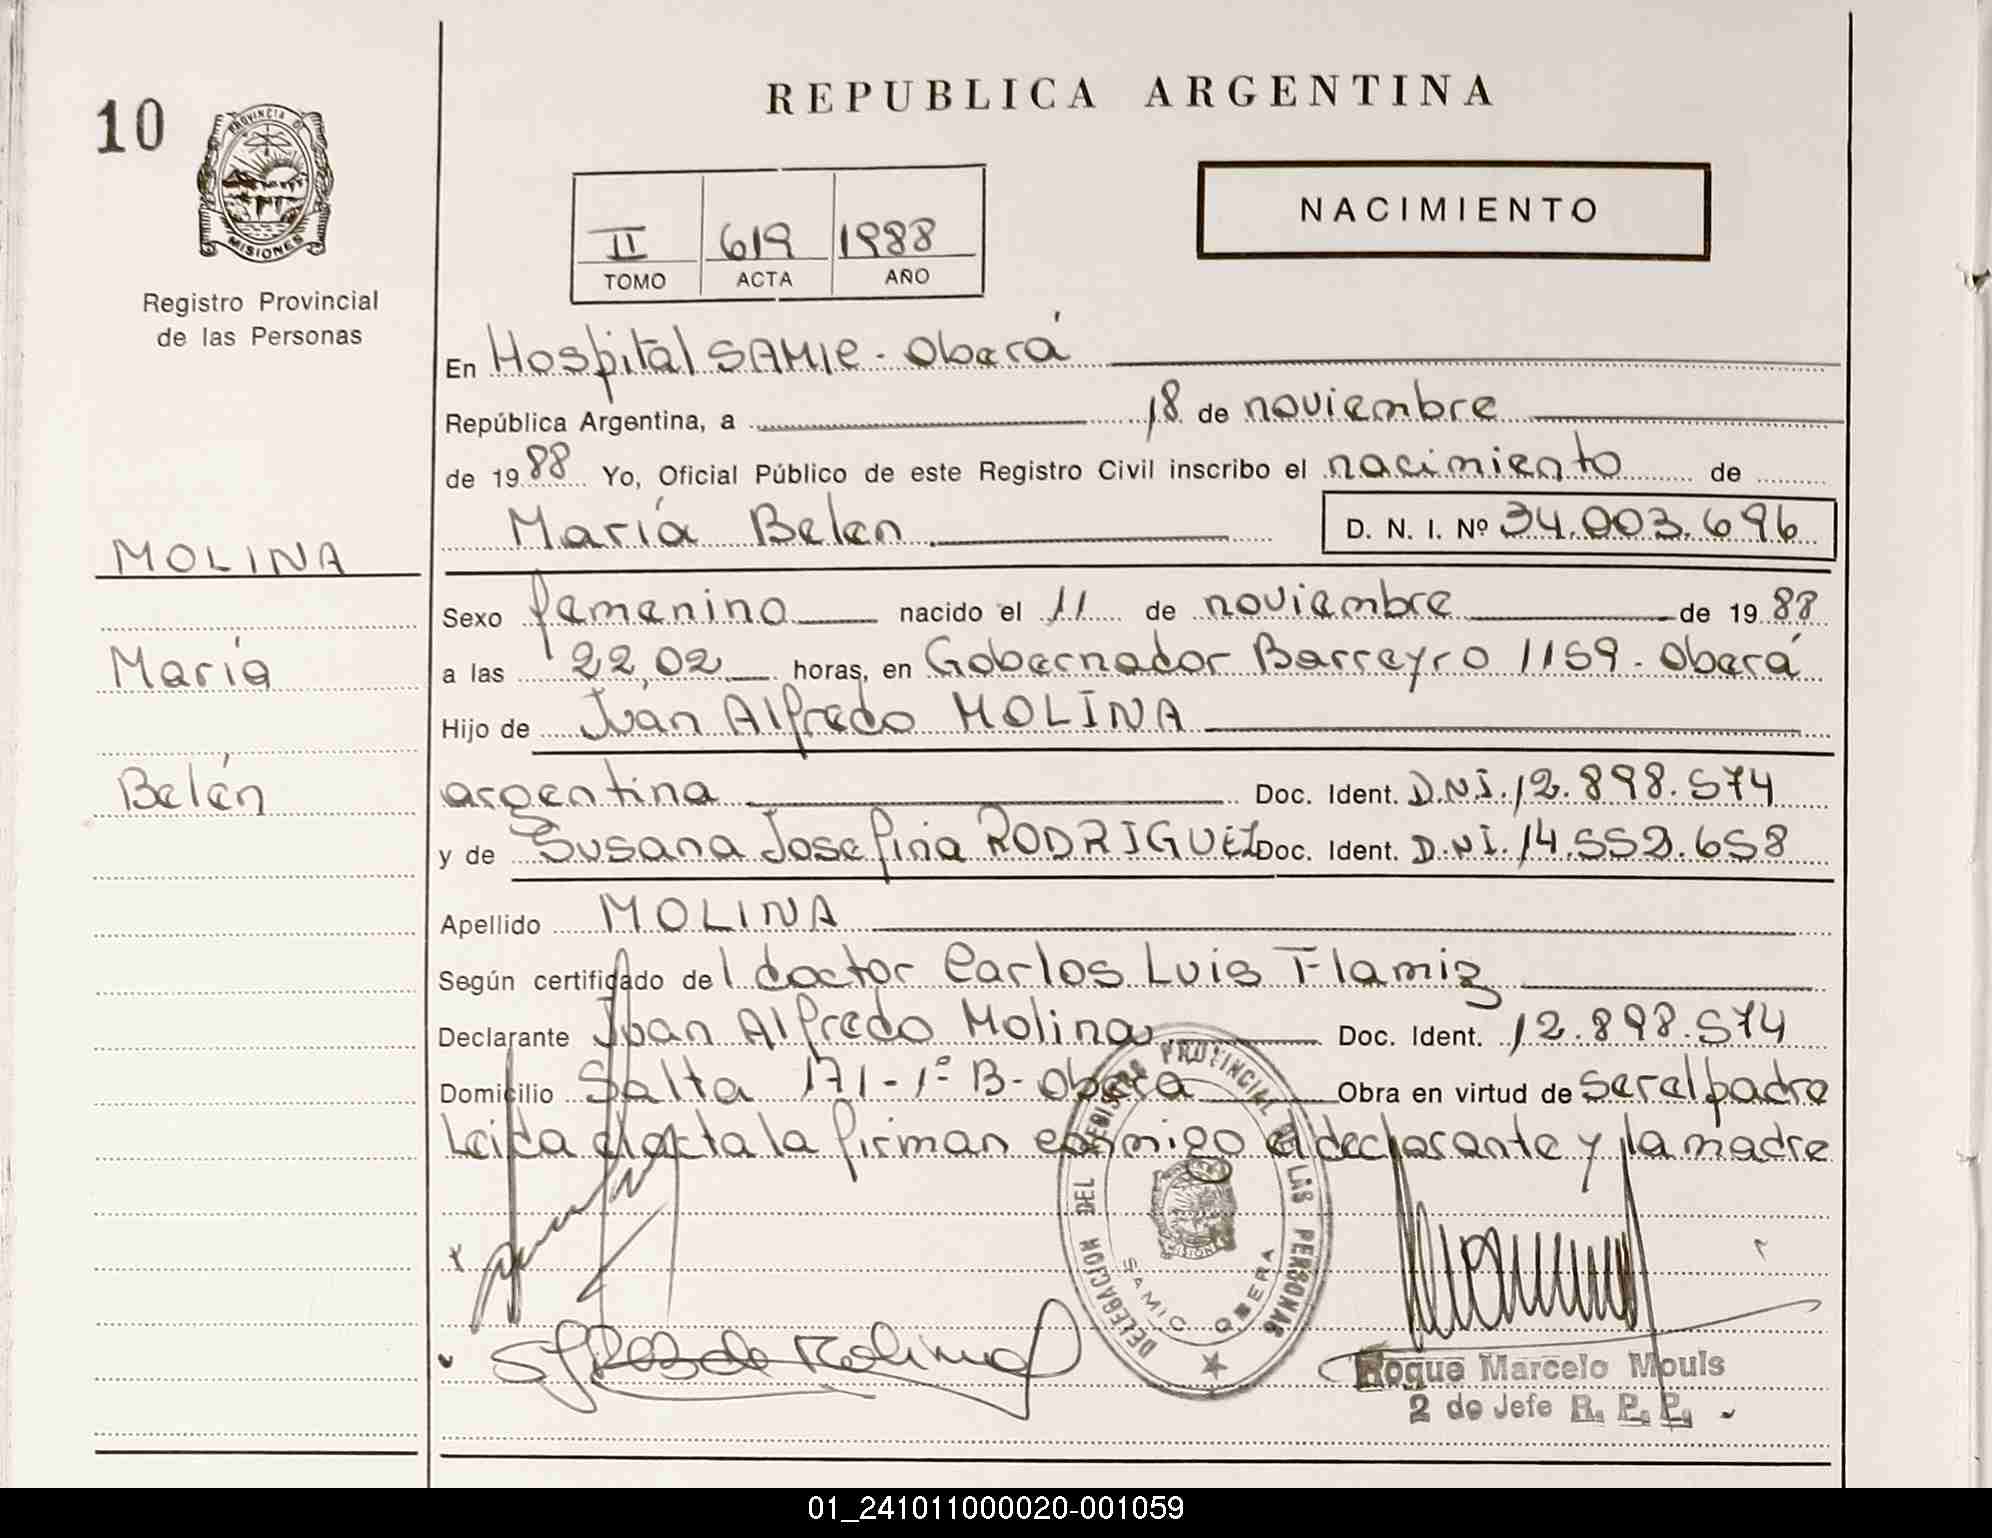 REPUBLICA ARGENTINA
10
PROVINCIA DE
MISIONES
Registro Provincial
de las Personas
NACIMIENTO
II 619 1988
TOMO ACTA AÑO
En Hospital SAMIC - Oberá
República Argentina, a 18 de noviembre
de 1988 Yo, Oficial Público de este Registro Civil inscribo el nacimiento de
María Belen D. N. I. Nº 34.003.696
MOLINA
María
Belén
Sexo femenino nacido el 11 de noviembre de 1988
a las 22,02 horas, en Gobernador Barreyro 1159 - Oberá
Hijo de Juan Alfredo MOLINA
argentina Doc. Ident. D.N.I. 12.898.574
y de Susana Josefina RODRIGUEZ Doc. Ident. D.N.I. 14.552.658
Apellido MOLINA
Según certificado del doctor Carlos Luis Flamiz
Declarante Juan Alfredo Molina Doc. Ident. 12.898.574
Domicilio Salta 171 - 1º B - Oberá Obra en virtud de ser el padre
Leida el acta la firman conmigo el declarante y la madre
DELEGACION DEL REGISTRO PROVINCIAL DE LAS PERSONAS
MISIONES
SAMIC OBERA
de Molina
Roque Marcelo Mouls
2 do Jefe R. P. P.
01_241011000020-001059